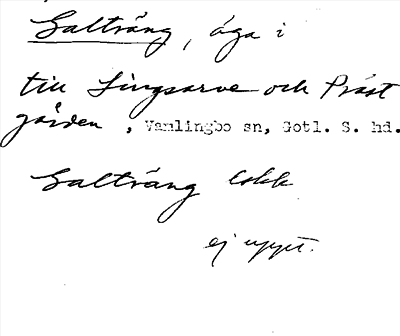 Galträng, äga i
till Lingsarve och Präst
gården, Vamlingbo sn, Gotl. S. hd.
Galträng
ej uppt.